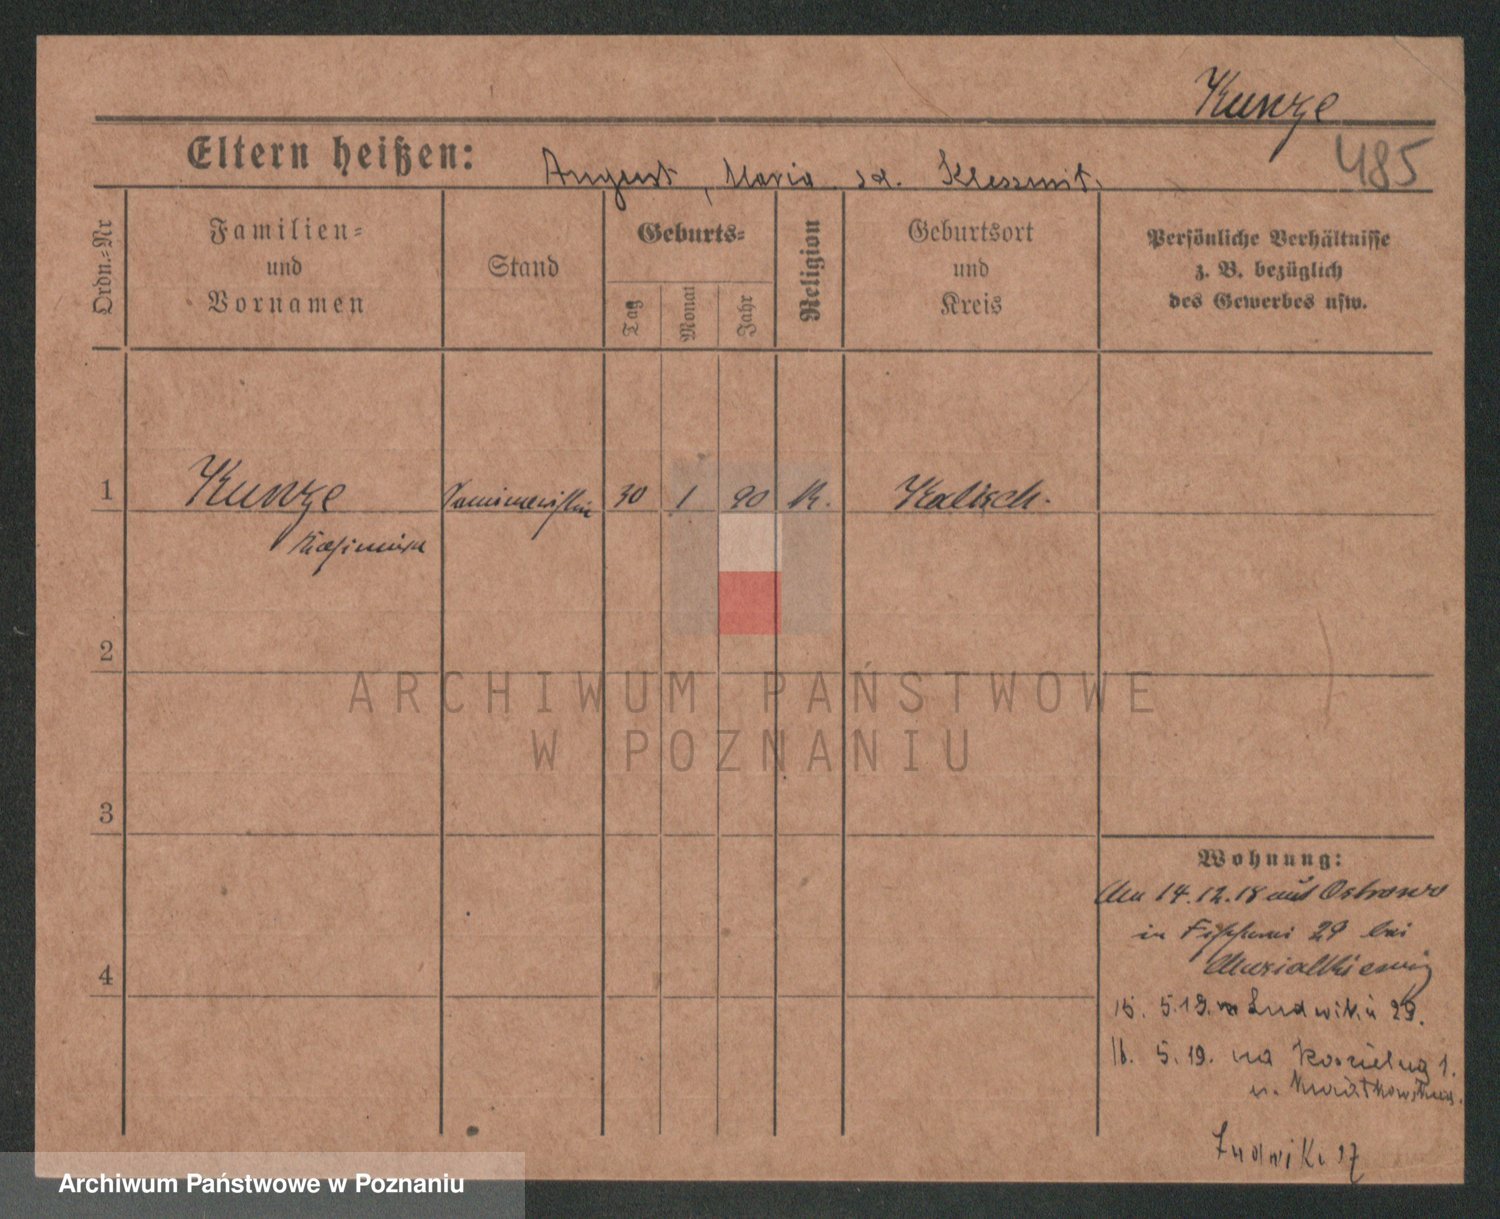 Kunze
485
Eltern heißen: August, Maria
Ordn.=Nr
Familien=
und
Vornamen
Stand
Geburts=
Tag
Monat
Jahr
Religion
Geburtsort
und
Kreis
Persönliche Verhältnisse
z. B. bezüglich
des Gewerbes usw.
1 Kunze 30 1 90 K. Kalisch.
2
3
4
Wohnung:
14.12.18 aus Ostrowo
in 29 bei
15. 5.19. Ludwiki 29.
16. 5.19. na Kościelną 1.
Ludwiki 27
ARCHIWUM PAŃSTWOWE
W POZNANIU
Archiwum Państwowe w Poznaniu